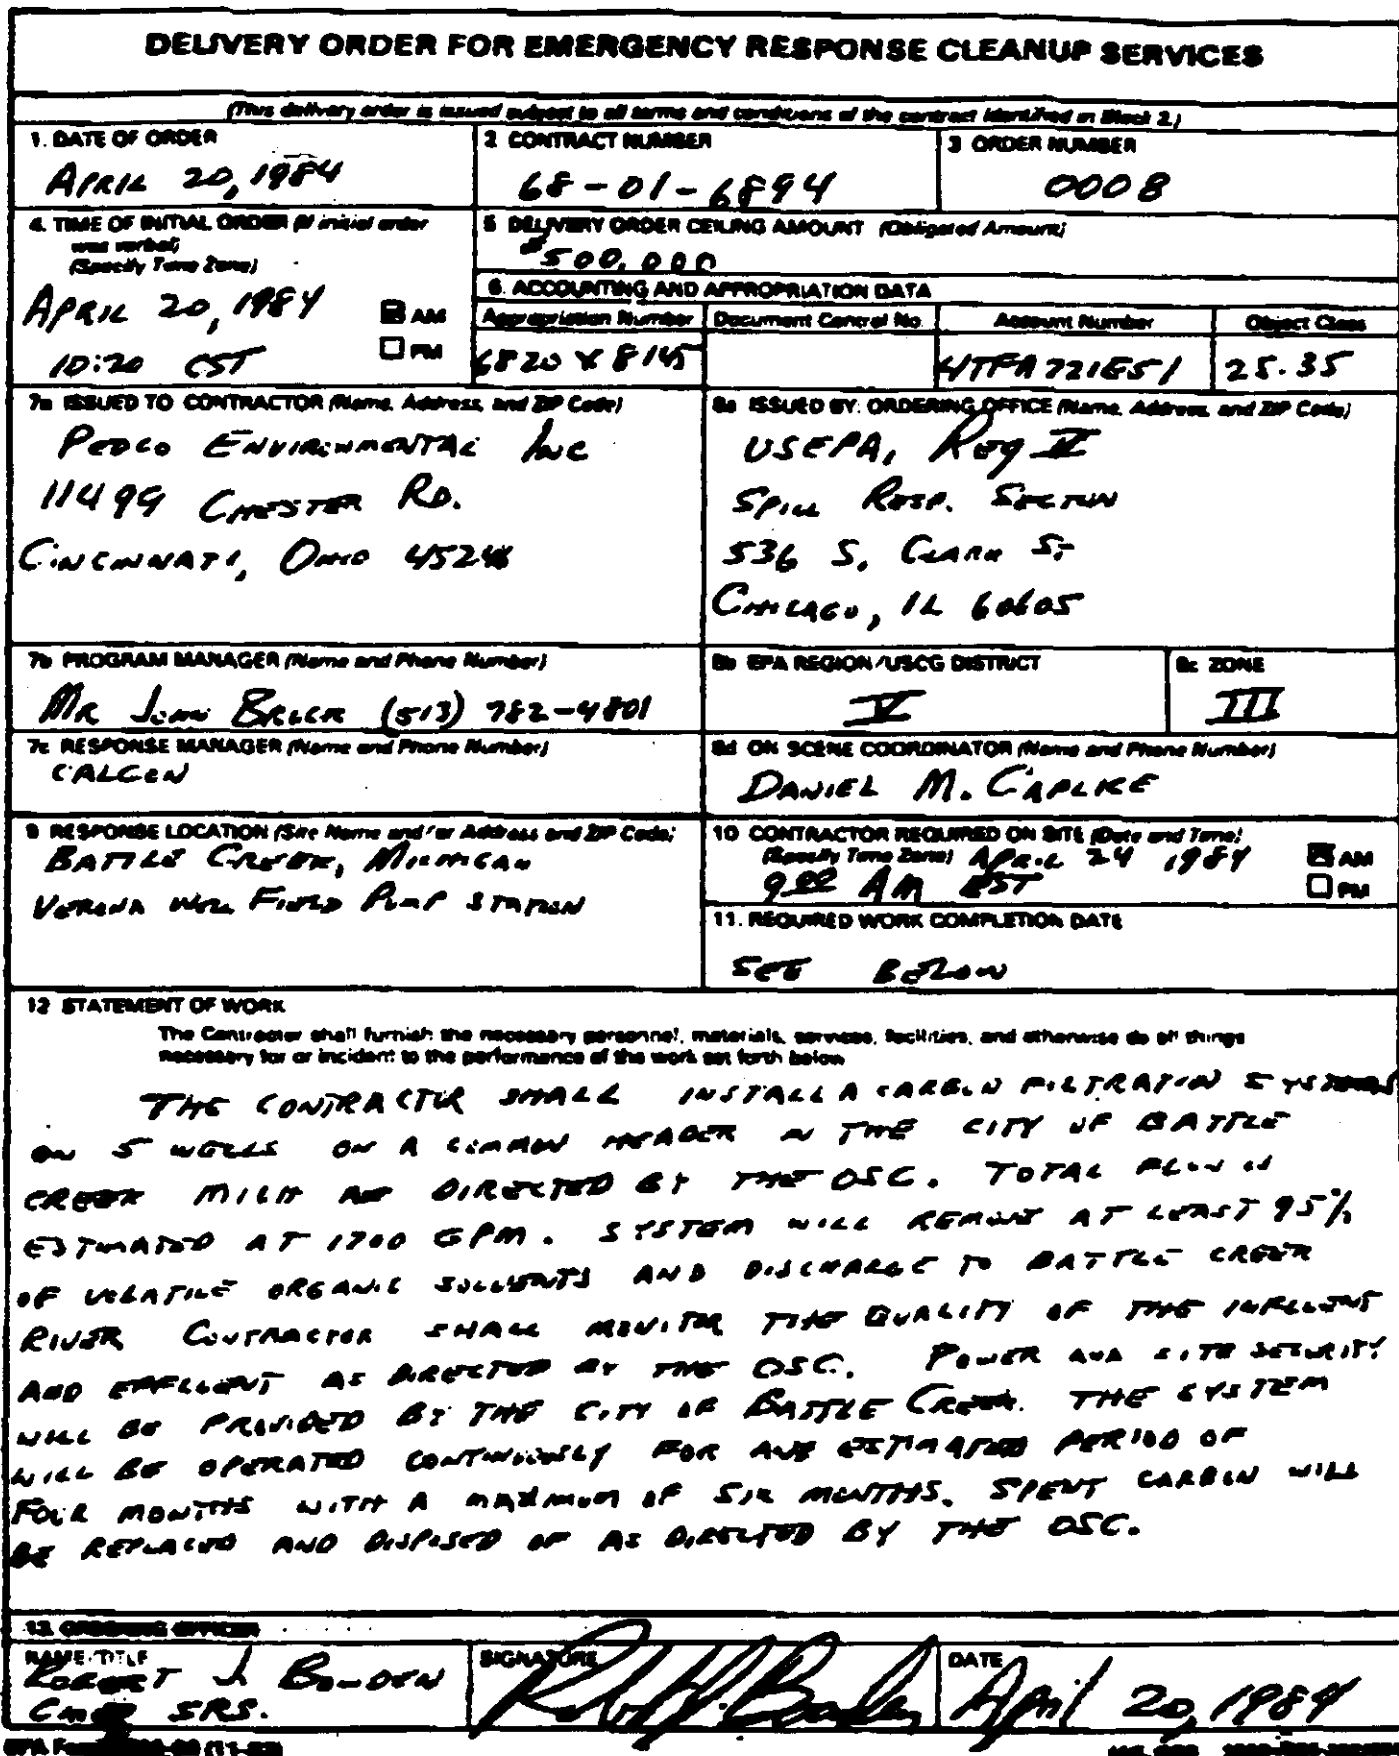 DELIVERY ORDER FOR EMERGENCY RESPONSE CLEANUP SERVICES
(This delivery order is issued subject to all terms and conditions of the contract identified in Block 2.)
1. DATE OF ORDER
APRIL 20, 1984
2 CONTRACT NUMBER
68-01-6894
3 ORDER NUMBER
0008
4. TIME OF INITIAL ORDER (If initial order
was verbal)
(Specify Time Zone)
APRIL 20, 1984
AM
10:20 CST
PM
5 DELIVERY ORDER CEILING AMOUNT (Obligated Amount)
$500,000
6. ACCOUNTING AND APPROPRIATION DATA
Appropriation Number Document Control No. Account Number Object Class
6820 X 8145 4TFA721E51 25.35
7a ISSUED TO CONTRACTOR (Name, Address, and ZIP Code)
PEDCO ENVIRONMENTAL INC
11499 CHESTER RD.
CINCINNATI, OHIO 45246
8a ISSUED BY: ORDERING OFFICE (Name, Address, and ZIP Code)
USEPA, Reg V
SPILL RESP. SECTION
536 S. CLARK ST
CHICAGO, IL 60605
7b PROGRAM MANAGER (Name and Phone Number)
MR JOHN BRUCK (513) 782-4801
8b EPA REGION/USCG DISTRICT
V
8c ZONE
III
7c RESPONSE MANAGER (Name and Phone Number)
CALGON
8d ON SCENE COORDINATOR (Name and Phone Number)
DANIEL M. CAPLICE
9 RESPONSE LOCATION (Site Name and/or Address and ZIP Code)
BATTLE CREEK, MICHIGAN
VERONA WELL FIELD PUMP STATION
10 CONTRACTOR REQUIRED ON SITE (Date and Time)
(Specify Time Zone) APRIL 24 1984 AM
9:00 AM EST PM
11. REQUIRED WORK COMPLETION DATE
SEE BELOW
12 STATEMENT OF WORK
The Contractor shall furnish the necessary personnel, materials, services, facilities, and otherwise do all things
necessary for or incident to the performance of the work set forth below
THE CONTRACTOR SHALL INSTALL A CARBON FILTRATION SYSTEMS
ON 5 WELLS ON A COMMON HEADER IN THE CITY OF BATTLE
CREEK MICH AS DIRECTED BY THE OSC. TOTAL FLOW IS
ESTIMATED AT 1700 GPM. SYSTEM WILL REMOVE AT LEAST 95%
OF VOLATILE ORGANIC SOLVENTS AND DISCHARGE TO BATTLE CREEK
RIVER CONTRACTOR SHALL MONITOR THE QUALITY OF THE INFLUENT
AND EFFLUENT AS DIRECTED BY THE OSC. POWER AND SITE SECURITY
WILL BE PROVIDED BY THE CITY OF BATTLE CREEK. THE SYSTEM
WILL BE OPERATED CONTINUOUSLY FOR AN ESTIMATED PERIOD OF
FOUR MONTHS WITH A MAXIMUM OF SIX MONTHS. SPENT CARBON WILL
BE REPLACED AND DISPOSED OF AS DIRECTED BY THE OSC.
13. ORDERING OFFICER
NAME/TITLE
ROBERT J. BOWDEN
CHIEF SRS.
SIGNATURE
DATE
April 20, 1984